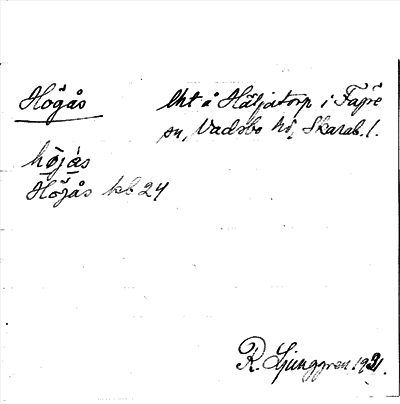 Högås
Lht å Häljatorp i Fägre
sn, Vadsbo hd, Skarab. l.
höjås
Högås kb 24
R. Ljunggren 1931.